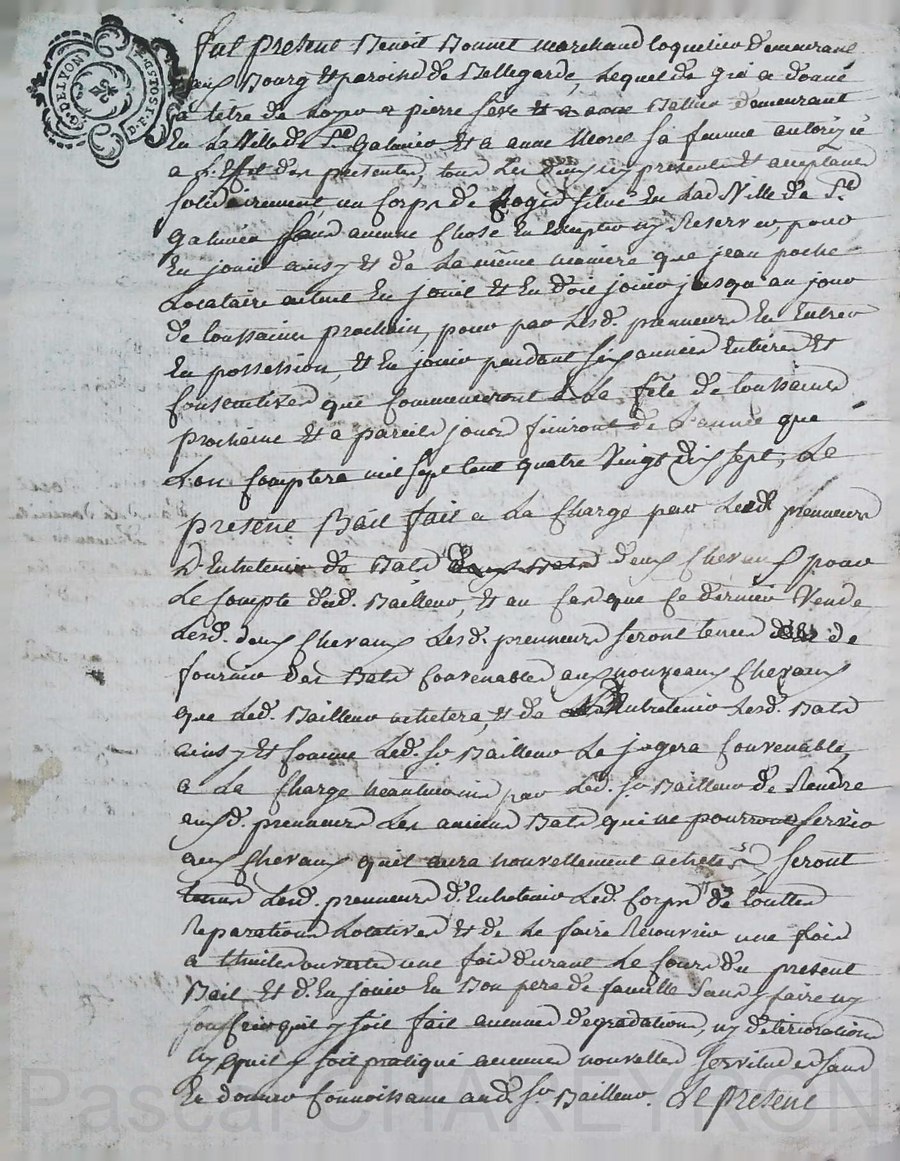 G. DE LYON
2 S
D. F. 5 SOLS. 5 D.
fut present Benoit Bonnet marchand coquetier demeurant
aux Bourg et paroisse de Bellegarde, Lequel de gré a donné
a titre de Loyer a pierre et a anne demeurant
En La Ville de St. Galmier Et a anne morel sa femme autorizée
a L'effet des presentes, tous Les deux icy presents et acceptants
solidairement un Corps de Logis situé En Lad. Ville de St.
galmier sans aucune Chose En Excepter ny Reserver, pour
En jouir ainsy Et de La même maniere que jean poche
Locataire actuel En jouit Et En doit jouir jusqu'au jour
de toussaint prochain, pour par Lesd. preneurs En Entrer
En possession, Et En jouir pendant six années Entieres Et
Consecutives que Commenceront a La fête de toussaint
prochaine Et a pareils jours finiront de L'année que
L'on Comptera mil sept Cent quatre Vingt dix sept, Le
present Bail fait a La Charge par Lesd. preneurs
D'Entretenir de Bats deux Chevaux pour
Le Compte dud. Bailleur, Et au Cas que Ce dernier Vende
Lesd. deux Chevaux Lesd. preneurs seront tenus de
fournir des Bats Convenables aux nouveaux Chevaux
que Led. Bailleur achetera, et de Entretenir Lesd. Bats
ainsy Et Comme Led. Sr. Bailleur Le jugera Convenable,
a La Charge neantmoins par Led. Sr. Bailleur de Rendre
auxd. preneurs Les anciens Bats qui ne pourront servir
aux Chevaux qu'il aura nouvellement achetés, seront
tenus Lesd. preneurs d'Entretenir Led. Corps de touttes
Reparations Locatives Et de Le faire Recouvrir une fois
a thuiles ouvertes une fois durant Le Cours du present
Bail, Et d'En jouir En Bon pere de famille sans y faire ny
souffrir qu'il y soit fait aucunes degradations, ny deteriorations
ny qu'il y soit pratiqué aucunes nouvelles servitudes sans
En donner Connoissance aud. Sr. Bailleur. Le present
Pascal CHAREYRON